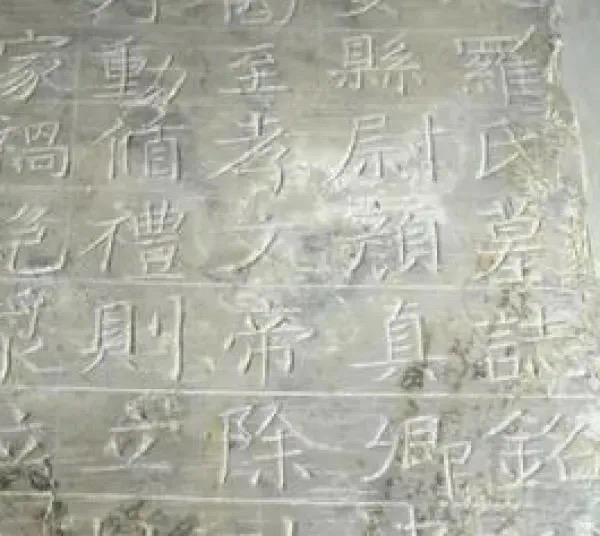 羅氏墓誌銘
縣尉顏真卿
至孝文帝除
動循禮則立
家禍色